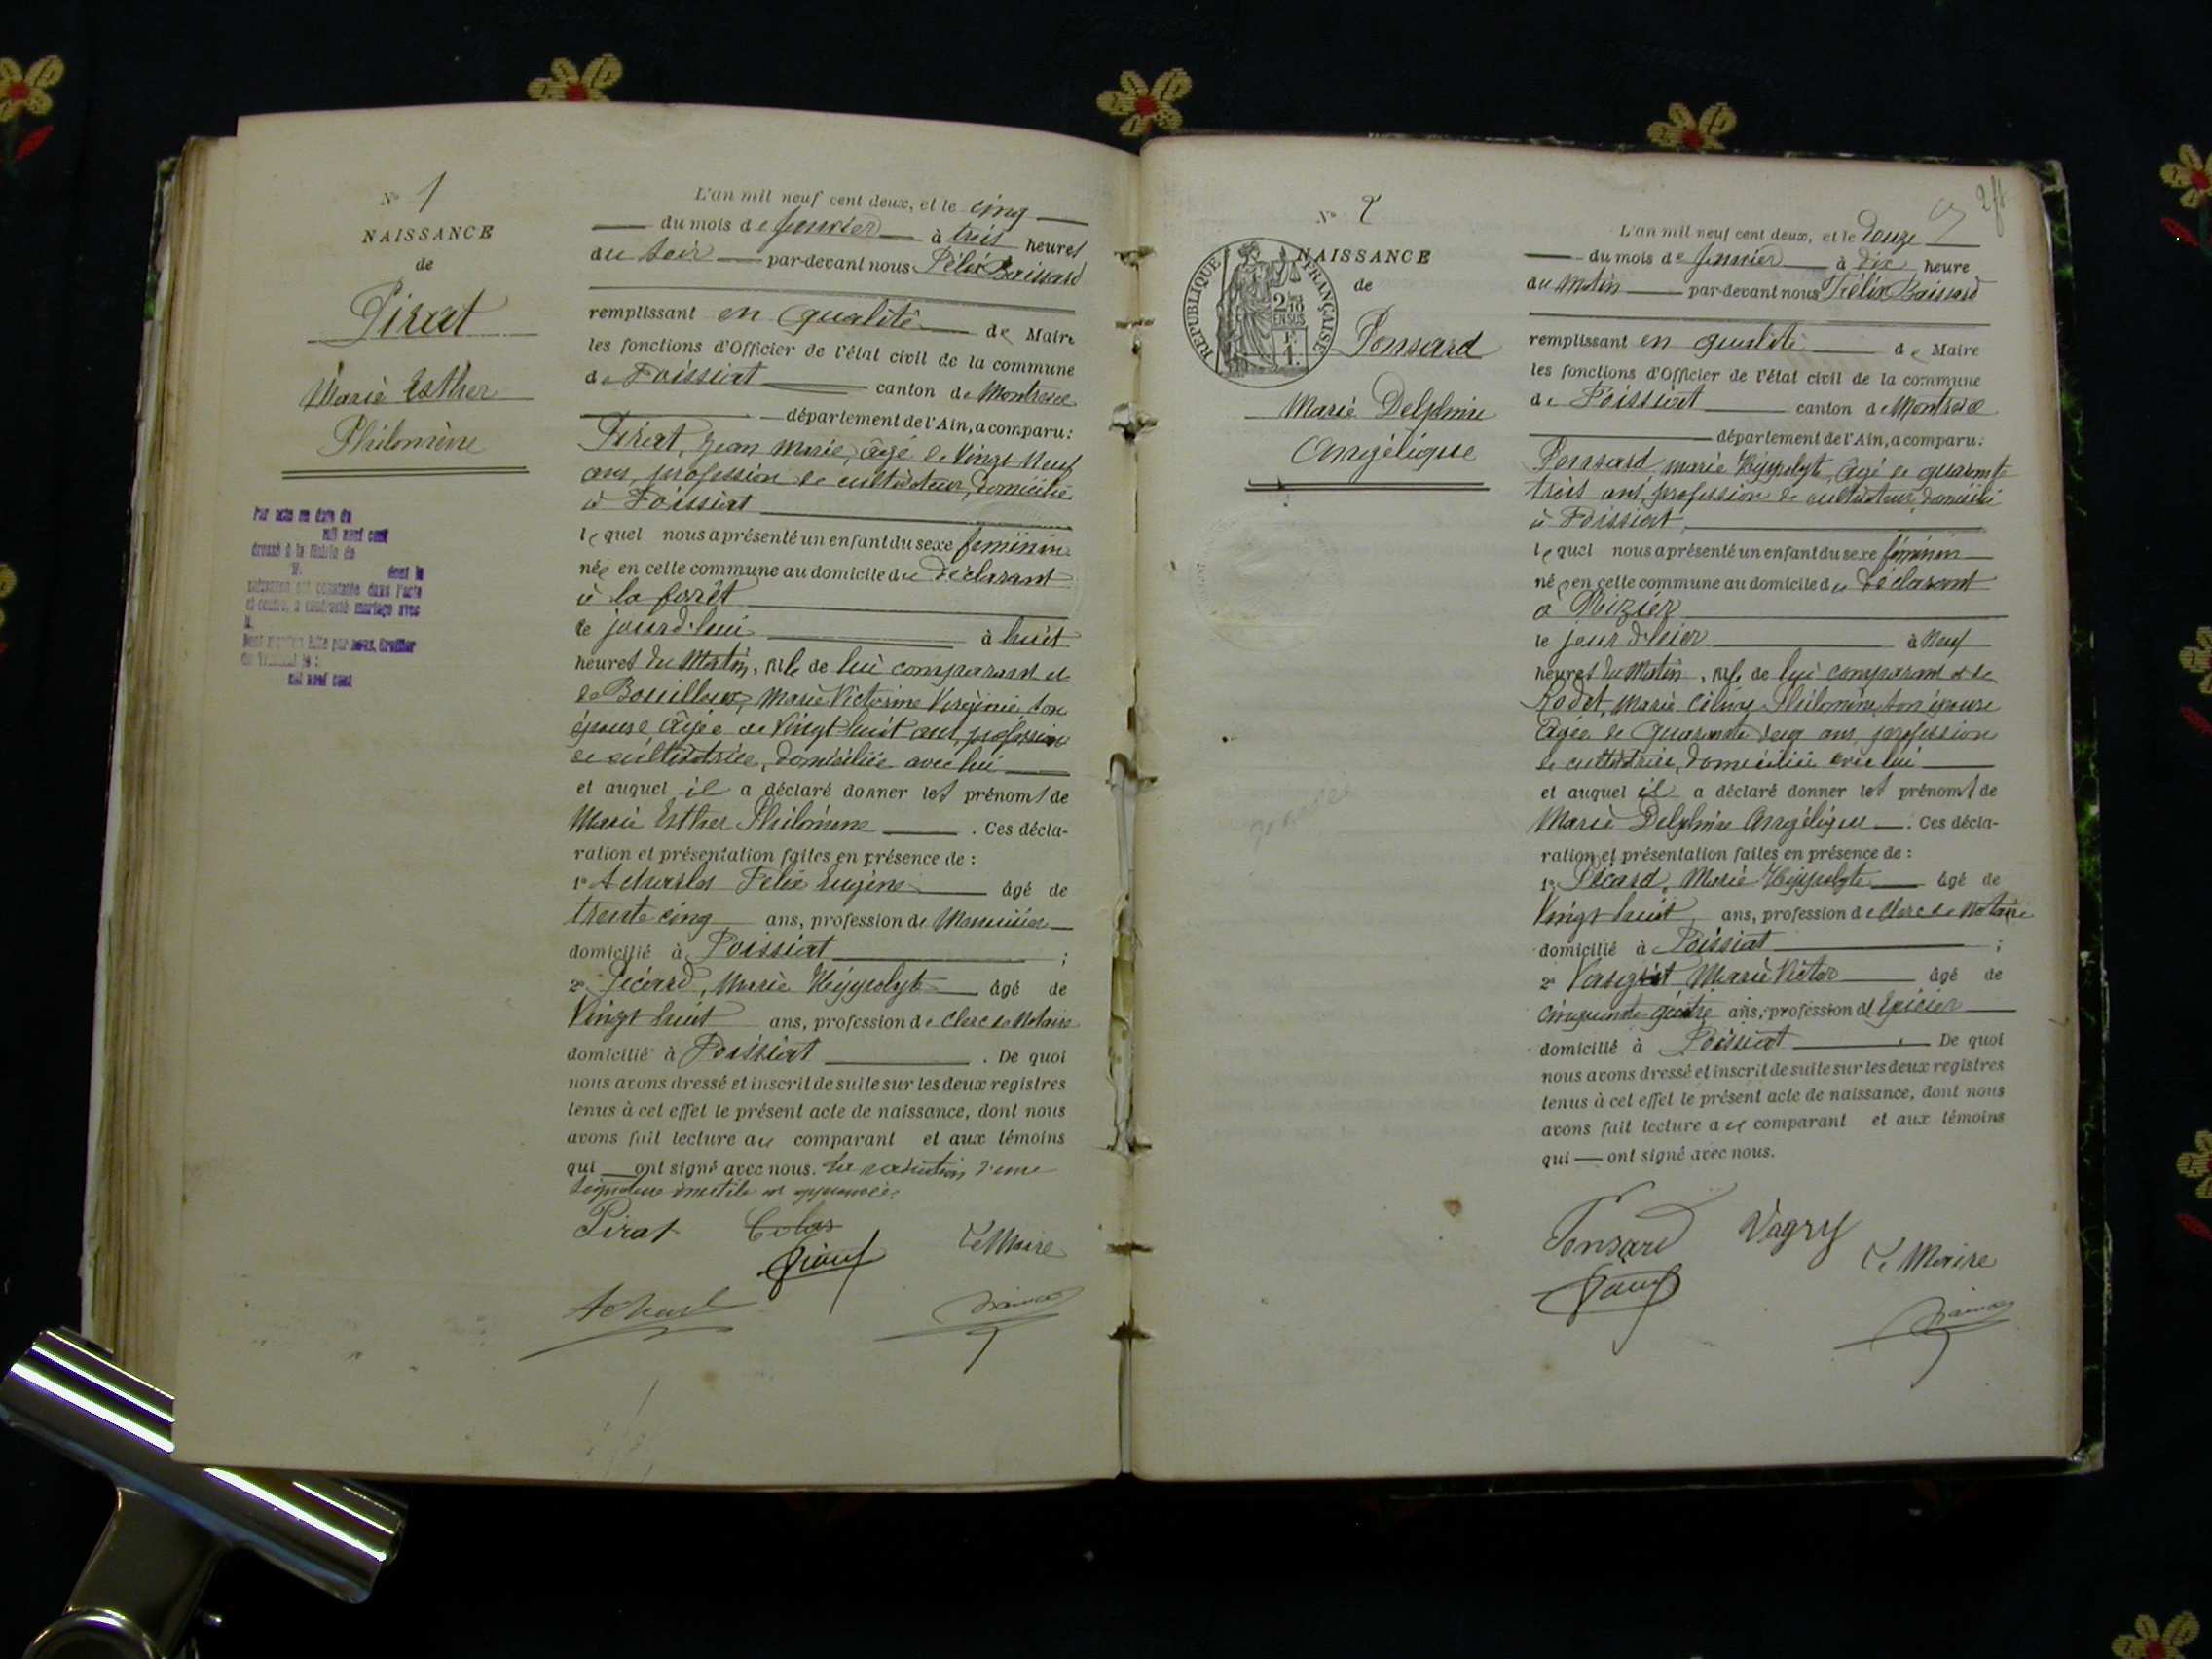 N° 1
NAISSANCE
de
Pirat
Marie Esther
Philomène
Par acte en date du
mil neuf cent
dressé à la Mairie de
M. dont la
naissance est constatée dans l'acte
ci-contre, a contracté mariage avec
M.
mil neuf cent
L'an mil neuf cent deux, et le cinq
du mois de janvier à trois heures
du soir par-devant nous Félix
remplissant en qualité de Maire
les fonctions d'Officier de l'état civil de la commune
de Foissiat canton de Montrevel
département de l'Ain, a comparu:
Pirat, Jean Marie, âgé de Vingt Neuf
ans, profession de cultivateur, domicilié
à Foissiat
lequel nous a présenté un enfant du sexe féminin
née en cette commune au domicile du déclarant
à la forêt
le jourd'hui à huit
heures du Matin, fille de lui comparant et
de Bouilloux, Marie Victorine Virginie, son
épouse, âgée de Vingt huit ans, profession
de cultivatrice, domiciliée avec lui
et auquel il a déclaré donner les prénoms de
Marie Esther Philomène . Ces décla-
ration et présentation faites en présence de :
1° Félix Eugène âgé de
trente cinq ans, profession de Menuisier
domicilié à Foissiat ;
2° Picard, Marie Hyppolyte âgé de
Vingt huit ans, profession de Clerc de Notaire
domicilié à Foissiat . De quoi
nous avons dressé et inscrit de suite sur les deux registres
tenus à cet effet le présent acte de naissance, dont nous
avons fait lecture au comparant et aux témoins
qui ont signé avec nous. La radiation d'une
signature inutile est approuvée.
Pirat Colas Le Maire
N° 2
NAISSANCE
de
RÉPUBLIQUE FRANÇAISE
2/10
EN SUS
1 F.
Ponsard
Marie Delphine
Angélique
L'an mil neuf cent deux, et le douze
du mois de janvier à dix heure
du Matin par-devant nous Félix
remplissant en qualité de Maire
les fonctions d'Officier de l'état civil de la commune
de Foissiat canton de Montrevel
département de l'Ain, a comparu:
Ponsard, Marie Hyppolyte, âgé de quarante
trois ans, profession de cultivateur, domicilié
à Foissiat
lequel nous a présenté un enfant du sexe féminin
née en cette commune au domicile du déclarant
à
le jour d'hier à Neuf
heures du Matin, fille de lui comparant et de
Rodet, Marie Philomène, son épouse
âgée de Quarante deux ans, profession
de cultivatrice, domiciliée avec lui
et auquel il a déclaré donner les prénoms de
Marie Delphine Angélique . Ces décla-
ration et présentation faites en présence de :
1° Picard, Marie Hyppolyte âgé de
Vingt huit ans, profession de Clerc de Notaire
domicilié à Foissiat ;
2° Marie Victor âgé de
cinquante quatre ans, profession d'Epicier
domicilié à Foissiat De quoi
nous avons dressé et inscrit de suite sur les deux registres
tenus à cet effet le présent acte de naissance, dont nous
avons fait lecture au comparant et aux témoins
qui ont signé avec nous.
Ponsard Vagry
Le Maire